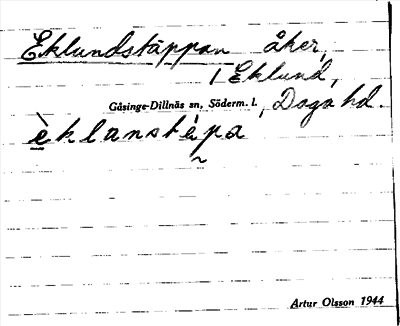 Eklundstäppan åker,
i Eklund,
Gåsinge-Dillnäs sn, Söderm. l., Daga hd.
èklanstèpa
Artur Olsson 1944